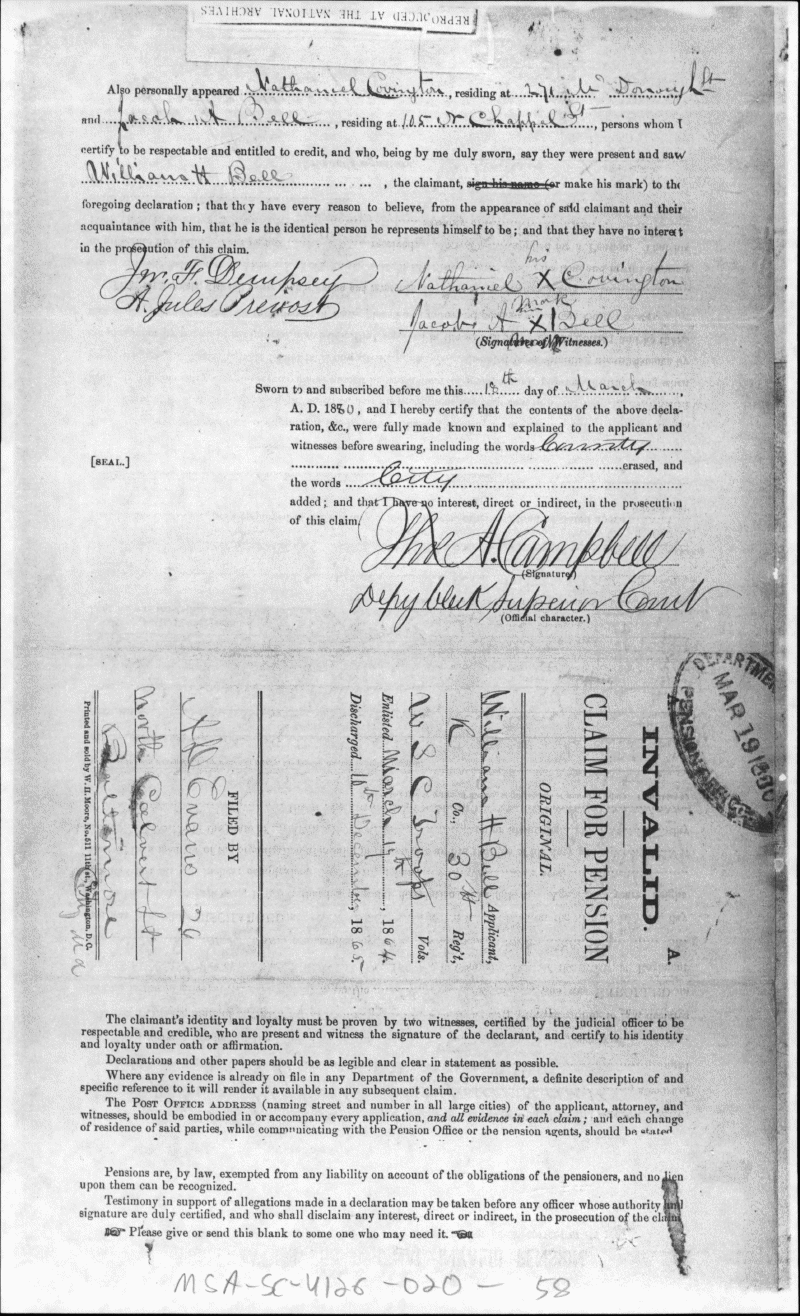 REPRODUCED AT THE NATIONAL ARCHIVES
Also personally appeared Nathaniel Covington, residing at 271 Mc Donough St
and Jacob A Bell, residing at 105 N Chappel St, persons whom I
certify to be respectable and entitled to credit, and who, being by me duly sworn, say they were present and saw
William H Bell, the claimant, sign his name (or make his mark) to the
foregoing declaration; that they have every reason to believe, from the appearance of said claimant and their
acquaintance with him, that he is the identical person he represents himself to be; and that they have no interest
in the prosecution of this claim.
Jno. F. Dempsey
A. Jules Prevost
his
Nathaniel X Covington
mark
Jacob A X Bell
(Signatures of Witnesses.)
Sworn to and subscribed before me this 18th day of March,
A. D. 1880, and I hereby certify that the contents of the above decla-
ration, &c., were fully made known and explained to the applicant and
witnesses before swearing, including the words County
erased, and
[SEAL.]
the words City
added; and that I have no interest, direct or indirect, in the prosecution
of this claim.
Thos A. Campbell
(Signature)
Depy Clerk Superior Court
(Official character.)
A. A.
INVALID.
CLAIM FOR PENSION
ORIGINAL.
William H Bell Applicant,
K Co., 30th Reg't,
U S C Troops Vols.
Enlisted March 19th, 1864.
Discharged 10th December, 1865
FILED BY
A H Evans
North Calvert St
Baltimore
City Md
Printed and sold by W. H. Moore, No. 511 11th st., Washington, D. C.
MAR 19 1880
PENSION OFFICE
The claimant's identity and loyalty must be proven by two witnesses, certified by the judicial officer to be
respectable and credible, who are present and witness the signature of the declarant, and certify to his identity
and loyalty under oath or affirmation.
Declarations and other papers should be as legible and clear in statement as possible.
Where any evidence is already on file in any Department of the Government, a definite description of and
specific reference to it will render it available in any subsequent claim.
The POST OFFICE ADDRESS (naming street and number in all large cities) of the applicant, attorney, and
witnesses, should be embodied in or accompany every application, and all evidence in each claim; and each change
of residence of said parties, while communicating with the Pension Office or the pension agents, should be stated
Pensions are, by law, exempted from any liability on account of the obligations of the pensioners, and no lien
upon them can be recognized.
Testimony in support of allegations made in a declaration may be taken before any officer whose authority and
signature are duly certified, and who shall disclaim any interest, direct or indirect, in the prosecution of the claim
Please give or send this blank to some one who may need it.
MSA-SC-4126-020-58